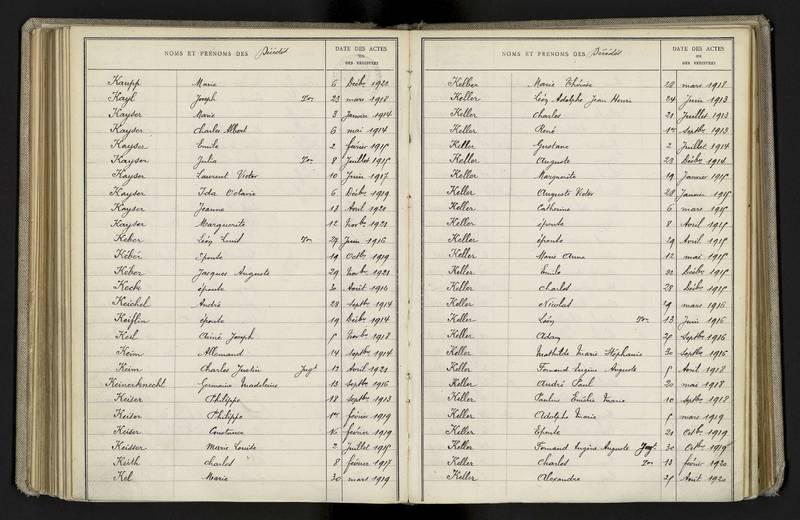 NOMS ET PRÉNOMS DES Décédés
DATE DES ACTES
OU
DES REGISTRES
Kaupp Marie 6 Décbr 1922
Kayl Joseph Ton 23 mars 1918
Kayser Marie 3 Janvier 1914
Kayser Charles Albert 6 mai 1914
Kayser Emile 2 février 1915
Kayser Julia Ton 8 Juillet 1915
Kayser Laurent Victor 10 Juin 1917
Kayser Ida Octavie 6 Décbr 1919
Kayser Jeanne 13 Avril 1920
Kayser Marguerite 12 Novbr 1921
Keber Léon Louis Ton 27 Juin 1916
Kéber Epouse 19 Octbr 1919
Kéber Jacques Auguste 29 Novbr 1921
Keck épouse Août 1914
Keichel André 28 Septbr 1914
Keiflin épouse 19 Décbr 1914
Keil Aimé Joseph Novbr 1918
Keim Allemand 14 Septbr 1914
Keim Charles Justin Jugt 12 Avril 1921
Keinerknecht Germaine Madeleine 13 Septbr 1916
Keiser Philippe 18 Septbr 1913
Keiser Philippe 1er février 1919
Keiser Constance février 1919
Keisser Marie Louise 2 Juillet 1915
Keith Charles 8 février 1917
Kel Marie 30 mars 1919
NOMS ET PRÉNOMS DES Décédés
DATE DES ACTES
OU
DES REGISTRES
Kelber Marie Thérèse 28 mars 1918
Keller Léon Adolphe Jean Henri 24 Juin 1913
Keller Charles 21 Juillet 1913
Keller René 1er Septbr 1913
Keller Gustave 2 Juillet 1914
Keller Auguste 23 Décbr 1914
Keller Marguerite 19 Janvier 1915
Keller Auguste Victor 28 Janvier 1915
Keller Catherine 6 mars 1915
Keller épouse 8 Avril 1915
Keller épouse 29 Avril 1915
Keller Marie Anne 12 mai 1915
Keller Emile 22 Décbr 1915
Keller Charles 28 Décbr 1915
Keller Nicolas mars 1916
Keller Léon Ton 13 Juin 1916
Keller Adam 25 Septbr 1916
Keller Mathilde Marie Stéphanie 30 Septbr 1916
Keller Fernand Eugène Auguste Avril 1918
Keller André Paul 20 mai 1918
Keller Pauline Emélie Marie 10 Septbr 1918
Keller Adolphe Marie mars 1919
Keller Epouse 21 Octbr 1919
Keller Fernand Eugène Auguste Jugt 30 Octbr 1919
Keller Charles Ton 13 février 1920
Keller Alexandre 25 Août 1920